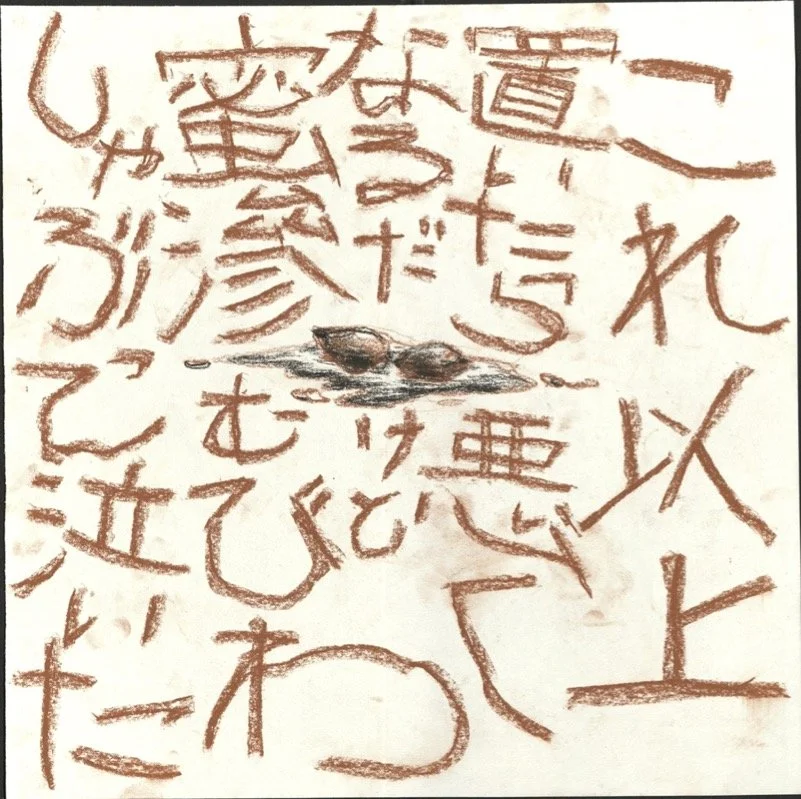 これ以上
置いたら悪く
なるだけど
蜜滲むびわ
しゃぶって泣いた